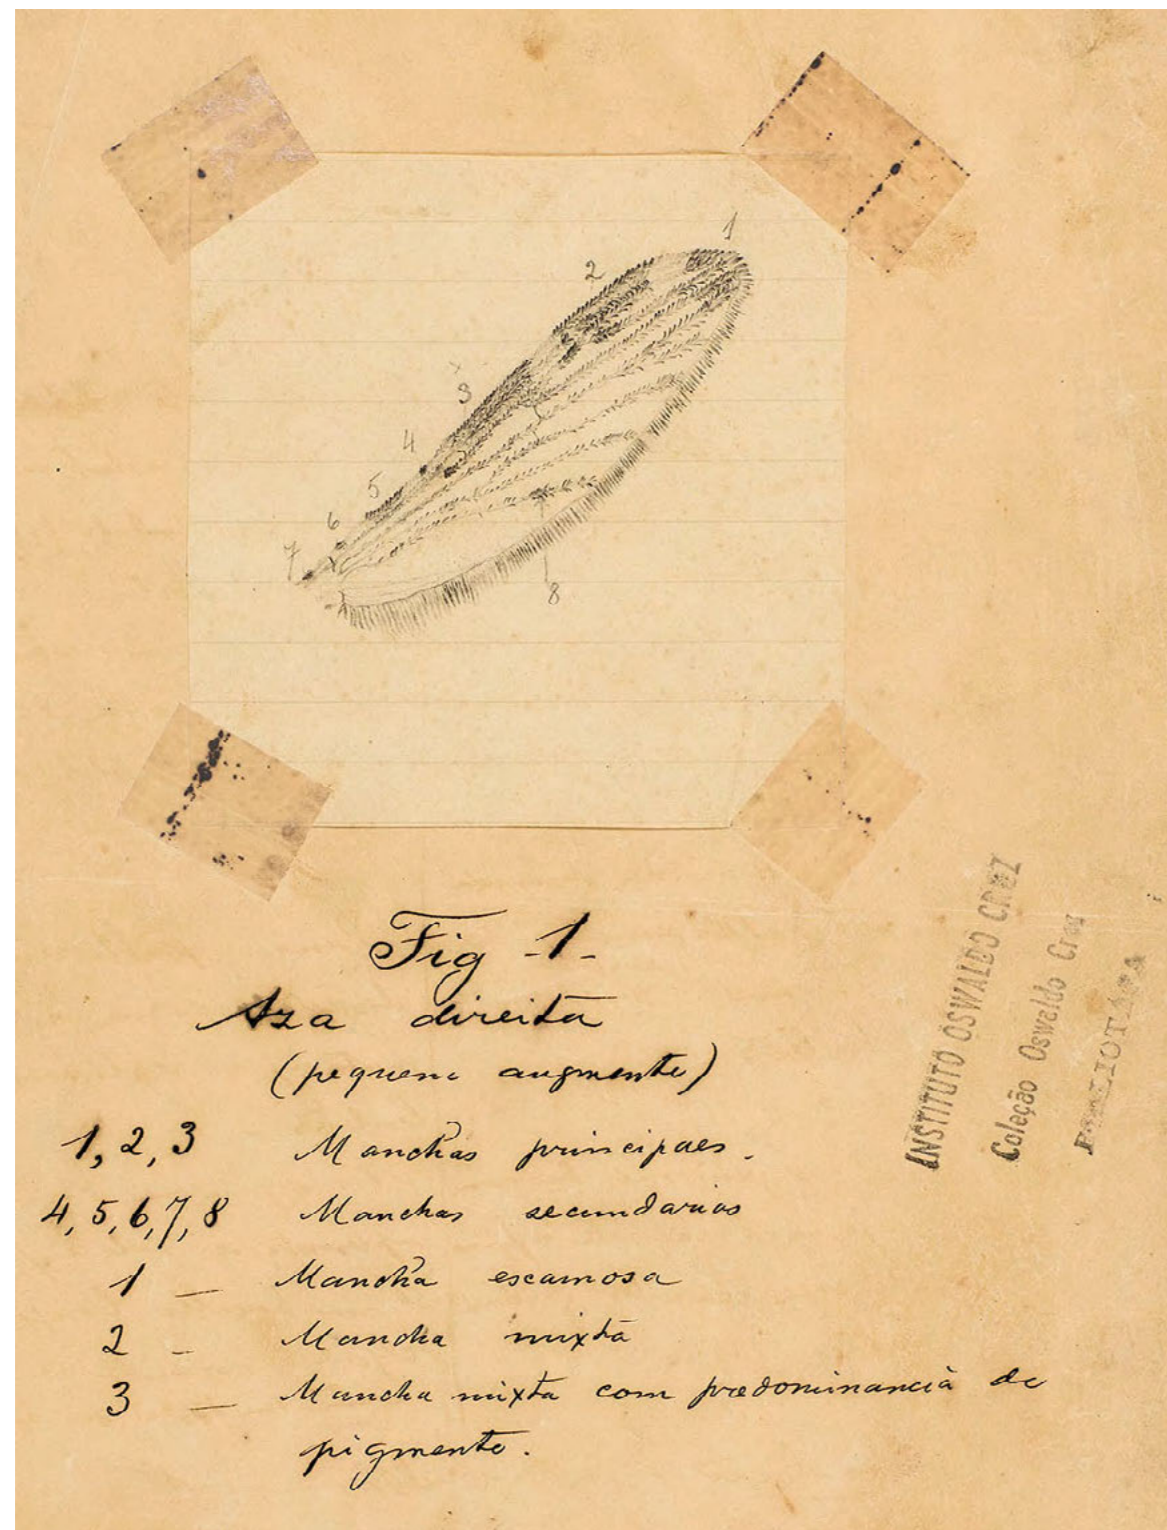 1
2
3
4
5
6
7
8
Fig -1-
Aza direita
(pequeno augmento)
1, 2, 3 Manchas principaes.
4, 5, 6, 7, 8 Manchas secundarias
1 — Mancha escamosa
2 — Mancha mixta
3 — Mancha mixta com predominancia de
pigmento.
INSTITUTO OSWALDO CRUZ
Coleção Oswaldo Cruz